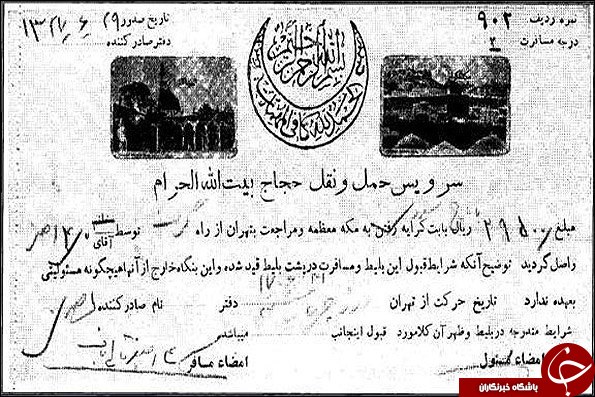 نمره ردیف ۹۰۲
تاریخ صدور ۲۹/۶/۱۳
درجه مسافرت ۲
دفتر صادر کننده
بسم الله الرحمن الرحیم
الحمدلله
سرویس حمل و نقل حجاج بیت الله الحرام
مبلغ ۲۹۵۰۰ ریال بابت کرایه رفتن به مکه معظمه و مراجعت بتهران از راه توسط خانم آقای
واصل گردید توضیح آنکه شرایط قبول این بلیط و مسافرت در پشت بلیط قید شده و این بنگاه خارج از آنها هیچگونه مسئولیتی
بعهده ندارد تاریخ حرکت از تهران دفتر نام صادر کننده
شرایط مندرجه در بلیط و ظهر آن کلا مورد قبول اینجانب میباشد
امضاء مسئول امضاء مسافر
باشگاه خبرنگاران